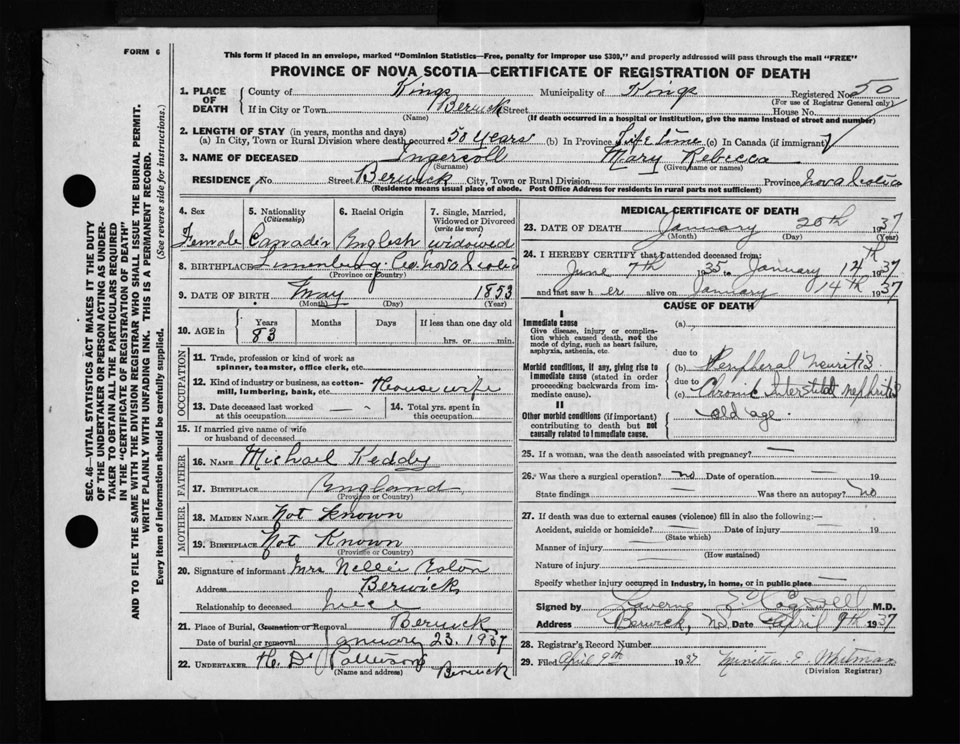 FORM 6
This form if placed in an envelope, marked "Dominion Statistics—Free, penalty for improper use $300," and properly addressed will pass through the mail "FREE"
PROVINCE OF NOVA SCOTIA—CERTIFICATE OF REGISTRATION OF DEATH
1. PLACE OF DEATH County of Kings Municipality of Kings Registered No. 50
(For use of Registrar General only)
If in City or Town Berwick Street House No.
(Name) (If death occurred in a hospital or institution, give the name instead of street and number)
2. LENGTH OF STAY (in years, months and days)
(a) In City, Town or Rural Division where death occurred 50 years (b) In Province Life time (c) In Canada (if immigrant)
3. NAME OF DECEASED Ingersoll Mary Rebecca
(Surname) (Given name or names)
RESIDENCE No. Street Berwick City, Town or Rural Division Province Nova Scotia
(Residence means usual place of abode. Post Office Address for residents in rural parts not sufficient)
4. Sex 5. Nationality (Citizenship) 6. Racial Origin 7. Single, Married, Widowed or Divorced (write the word)
Female Canadin English widowed
8. BIRTHPLACE Lunenburg Co Nova Scotia
(Province or Country)
9. DATE OF BIRTH May 1853
(Month) (Day) (Year)
10. AGE in Years Months Days If less than one day old
83 hrs. or min.
OCCUPATION
11. Trade, profession or kind of work as spinner, teamster, office clerk, etc.
12. Kind of industry or business, as cotton-mill, lumbering, bank, etc. Housewife
13. Date deceased last worked at this occupation — 14. Total yrs. spent in this occupation
15. If married give name of wife or husband of deceased
FATHER
16. NAME Michael Keddy
17. BIRTHPLACE England
(Province or Country)
MOTHER
18. MAIDEN NAME Not Known
19. BIRTHPLACE Not Known
(Province or Country)
20. Signature of informant Mrs Nellie Eaton
Address Berwick
Relationship to deceased niece
21. Place of Burial, Cremation or Removal Berwick
Date of burial or removal January 23, 1937
22. UNDERTAKER H. D. Patterson Berwick
(Name and address)
MEDICAL CERTIFICATE OF DEATH
23. DATE OF DEATH January 20th 1937
(Month) (Day) (Year)
24. I HEREBY CERTIFY that I attended deceased from:
June 7th 1935 to January 14th 1937
and last saw her alive on January 14th 1937
CAUSE OF DEATH
I
Immediate cause (a)
Give disease, injury or complication which caused death, not the mode of dying, such as heart failure, asphyxia, asthenia, etc.
due to
Morbid conditions, if any, giving rise to immediate cause (stated in order proceeding backwards from immediate cause). (b) Peripheral Neuritis
due to
(c) Chronic Interstitial nephritis
II
Other morbid conditions (if important) contributing to death but not causally related to immediate cause. old age.
25. If a woman, was the death associated with pregnancy? —
26. Was there a surgical operation? no Date of operation — 19
State findings — Was there an autopsy? no
27. If death was due to external causes (violence) fill in also the following:—
Accident, suicide or homicide? — Date of injury — 19
(State which)
Manner of injury —
(How sustained)
Nature of injury —
Specify whether injury occurred in industry, in home, or in public place —
Signed by Laverne Cogswell M.D.
Address Berwick, NS Date April 9th 1937
28. Registrar's Record Number
29. Filed April 9th 1937 E. Whitman
(Division Registrar)
SEC. 46—VITAL STATISTICS ACT MAKES IT THE DUTY
OF THE UNDERTAKER OR PERSON ACTING AS UNDER-
TAKER TO OBTAIN ALL THE PARTICULARS REQUIRED
IN THE "CERTIFICATE OF REGISTRATION OF DEATH"
AND TO FILE THE SAME WITH THE DIVISION REGISTRAR WHO SHALL ISSUE THE BURIAL PERMIT.
WRITE PLAINLY WITH UNFADING INK. THIS IS A PERMANENT RECORD.
Every item of information should be carefully supplied. (See reverse side for instructions.)